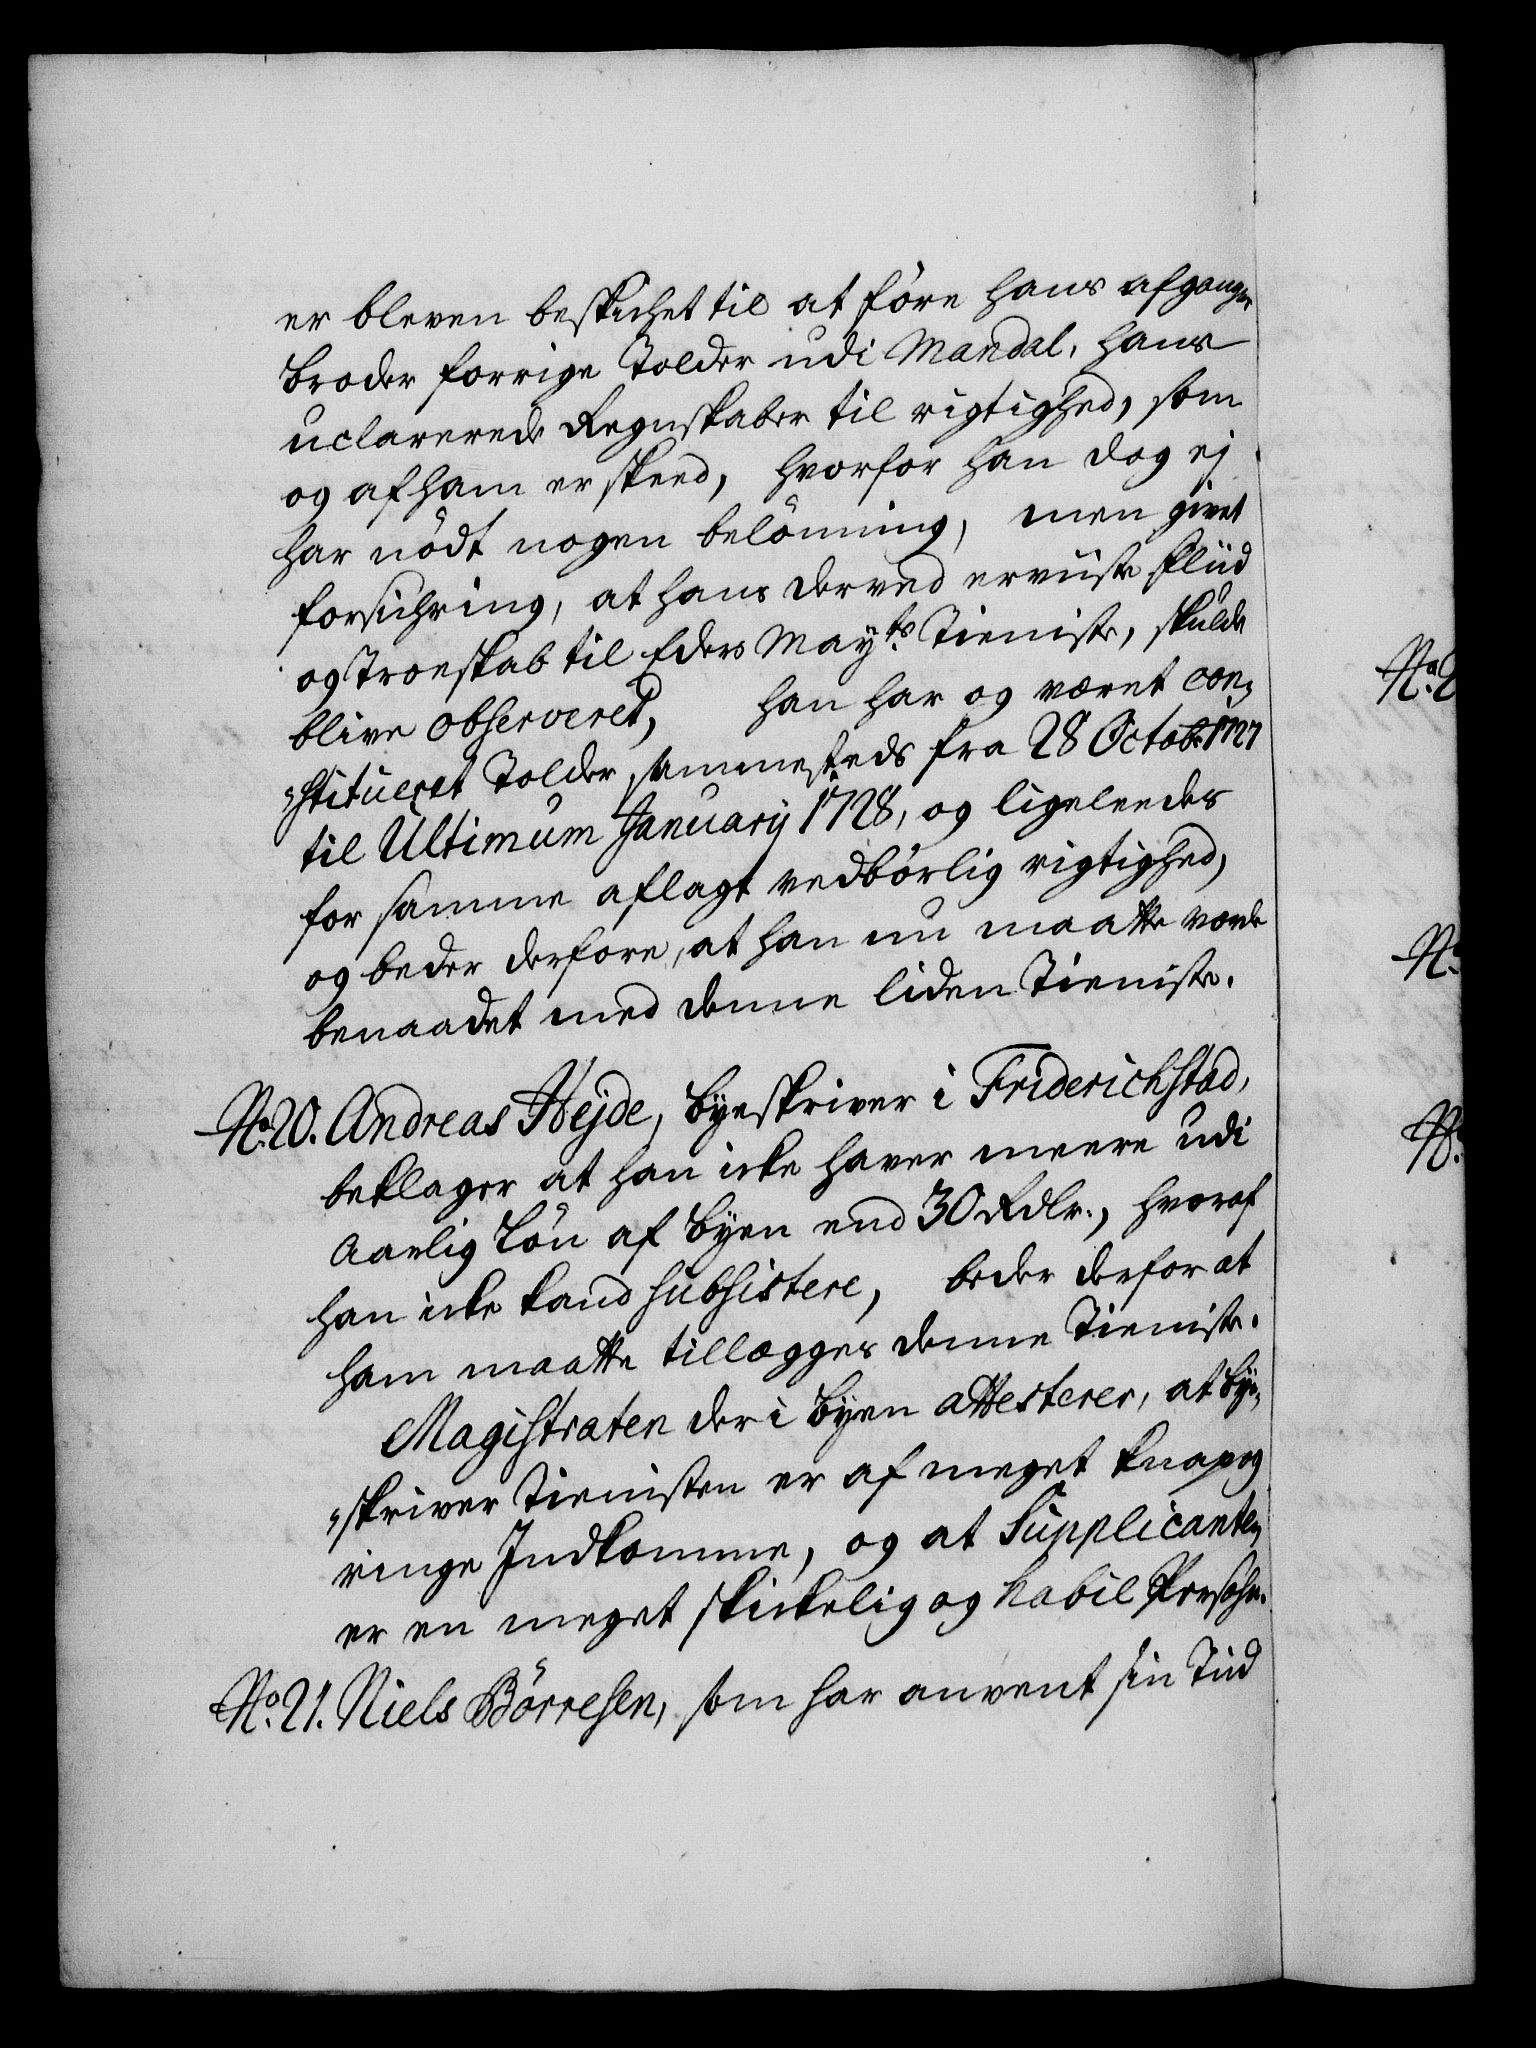 er bleven beskichet til at före hans afgangne
Broder forrige Tolder udi Mandal, hans
uclarerede Regnskaber til rigtighed, som
og af ham er skeed, hvorfor han dog ej
har nödt nogen belönning, men givet
forsichring, at hans derved erviiste Fliid
og Troeskab til Eders Mayts. Tieniste, skulde
blive observeret, han har og været con-
„stitueret Tolder sammesteds fra 28 Octobr. 1727
til Ultimum January 1728, og ligeleedes
for samme aflagt vedbörlig rigtighed,
og beder derfore, at han nu maatte vorde
benaadet med denne liden Tieniste.
No. 20. Andreas Hejde, Byeskriver i Friderichstad,
beklager at han icke haver meere udi
Aarlig Lön af Byen end 30 Rdlr., hvoraf
han icke kand subsistere, beder derfor at
ham maatte tillægges denne Tieniste.
Magistraten der i Byen attesterer, at Bye-
„skriver Tienisten er af meget knap og
ringe Indkomme, og at Supplicanten
er en meget skickelig og habil Persohn.
No. 21. Niels Börresen, som har anvent sin Tiid
No. 2
No.
No.